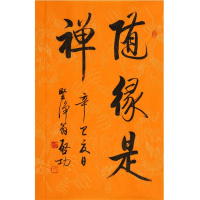 随缘是
禅
辛巳夏日
坚净翁启功